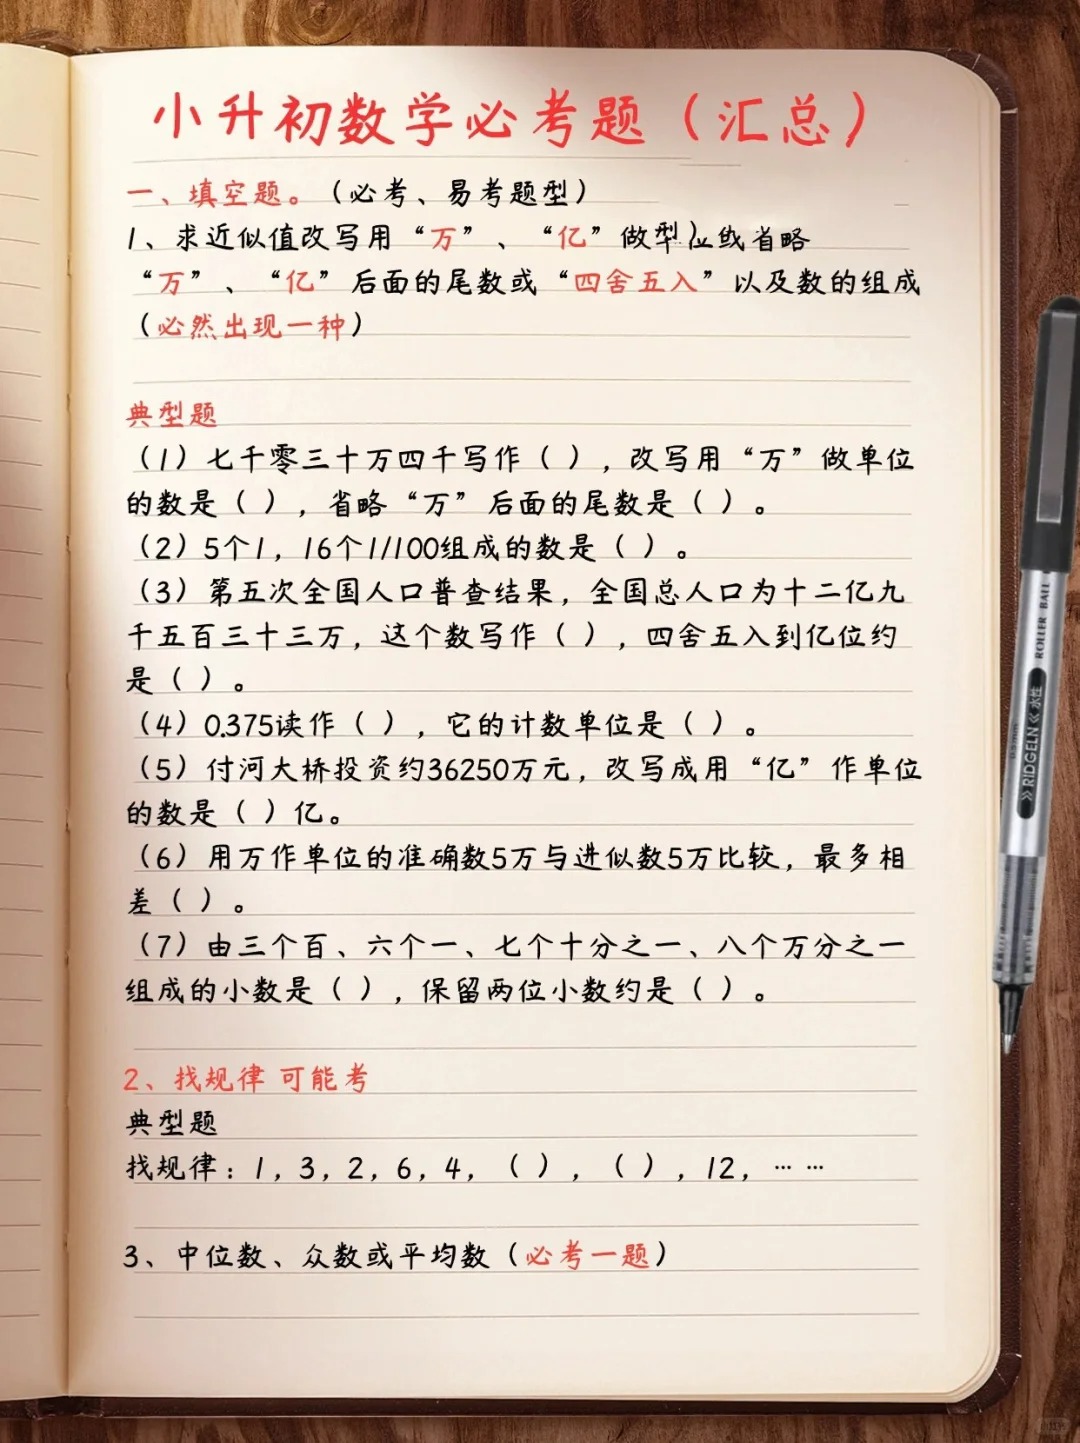 小升初数学必考题（汇总）
一、填空题。（必考、易考题型）
1、求近似值改写用“万”、“亿”做型位或省略
“万”、“亿”后面的尾数或“四舍五入”以及数的组成
（必然出现一种）
典型题
（1）七千零三十万四千写作（ ），改写用“万”做单位
的数是（ ），省略“万”后面的尾数是（ ）。
（2）5个1，16个1/100组成的数是（ ）。
（3）第五次全国人口普查结果，全国总人口为十二亿九
千五百三十三万，这个数写作（ ），四舍五入到亿位约
是（ ）。
（4）0.375读作（ ），它的计数单位是（ ）。
（5）付河大桥投资约36250万元，改写成用“亿”作单位
的数是（ ）亿。
（6）用万作单位的准确数5万与进似数5万比较，最多相
差（ ）。
（7）由三个百、六个一、七个十分之一、八个万分之一
组成的小数是（ ），保留两位小数约是（ ）。
2、找规律 可能考
典型题
找规律：1，3，2，6，4，（ ），（ ），12，… …
3、中位数、众数或平均数（必考一题）
ROLLER BALL
RIDGELN 水性